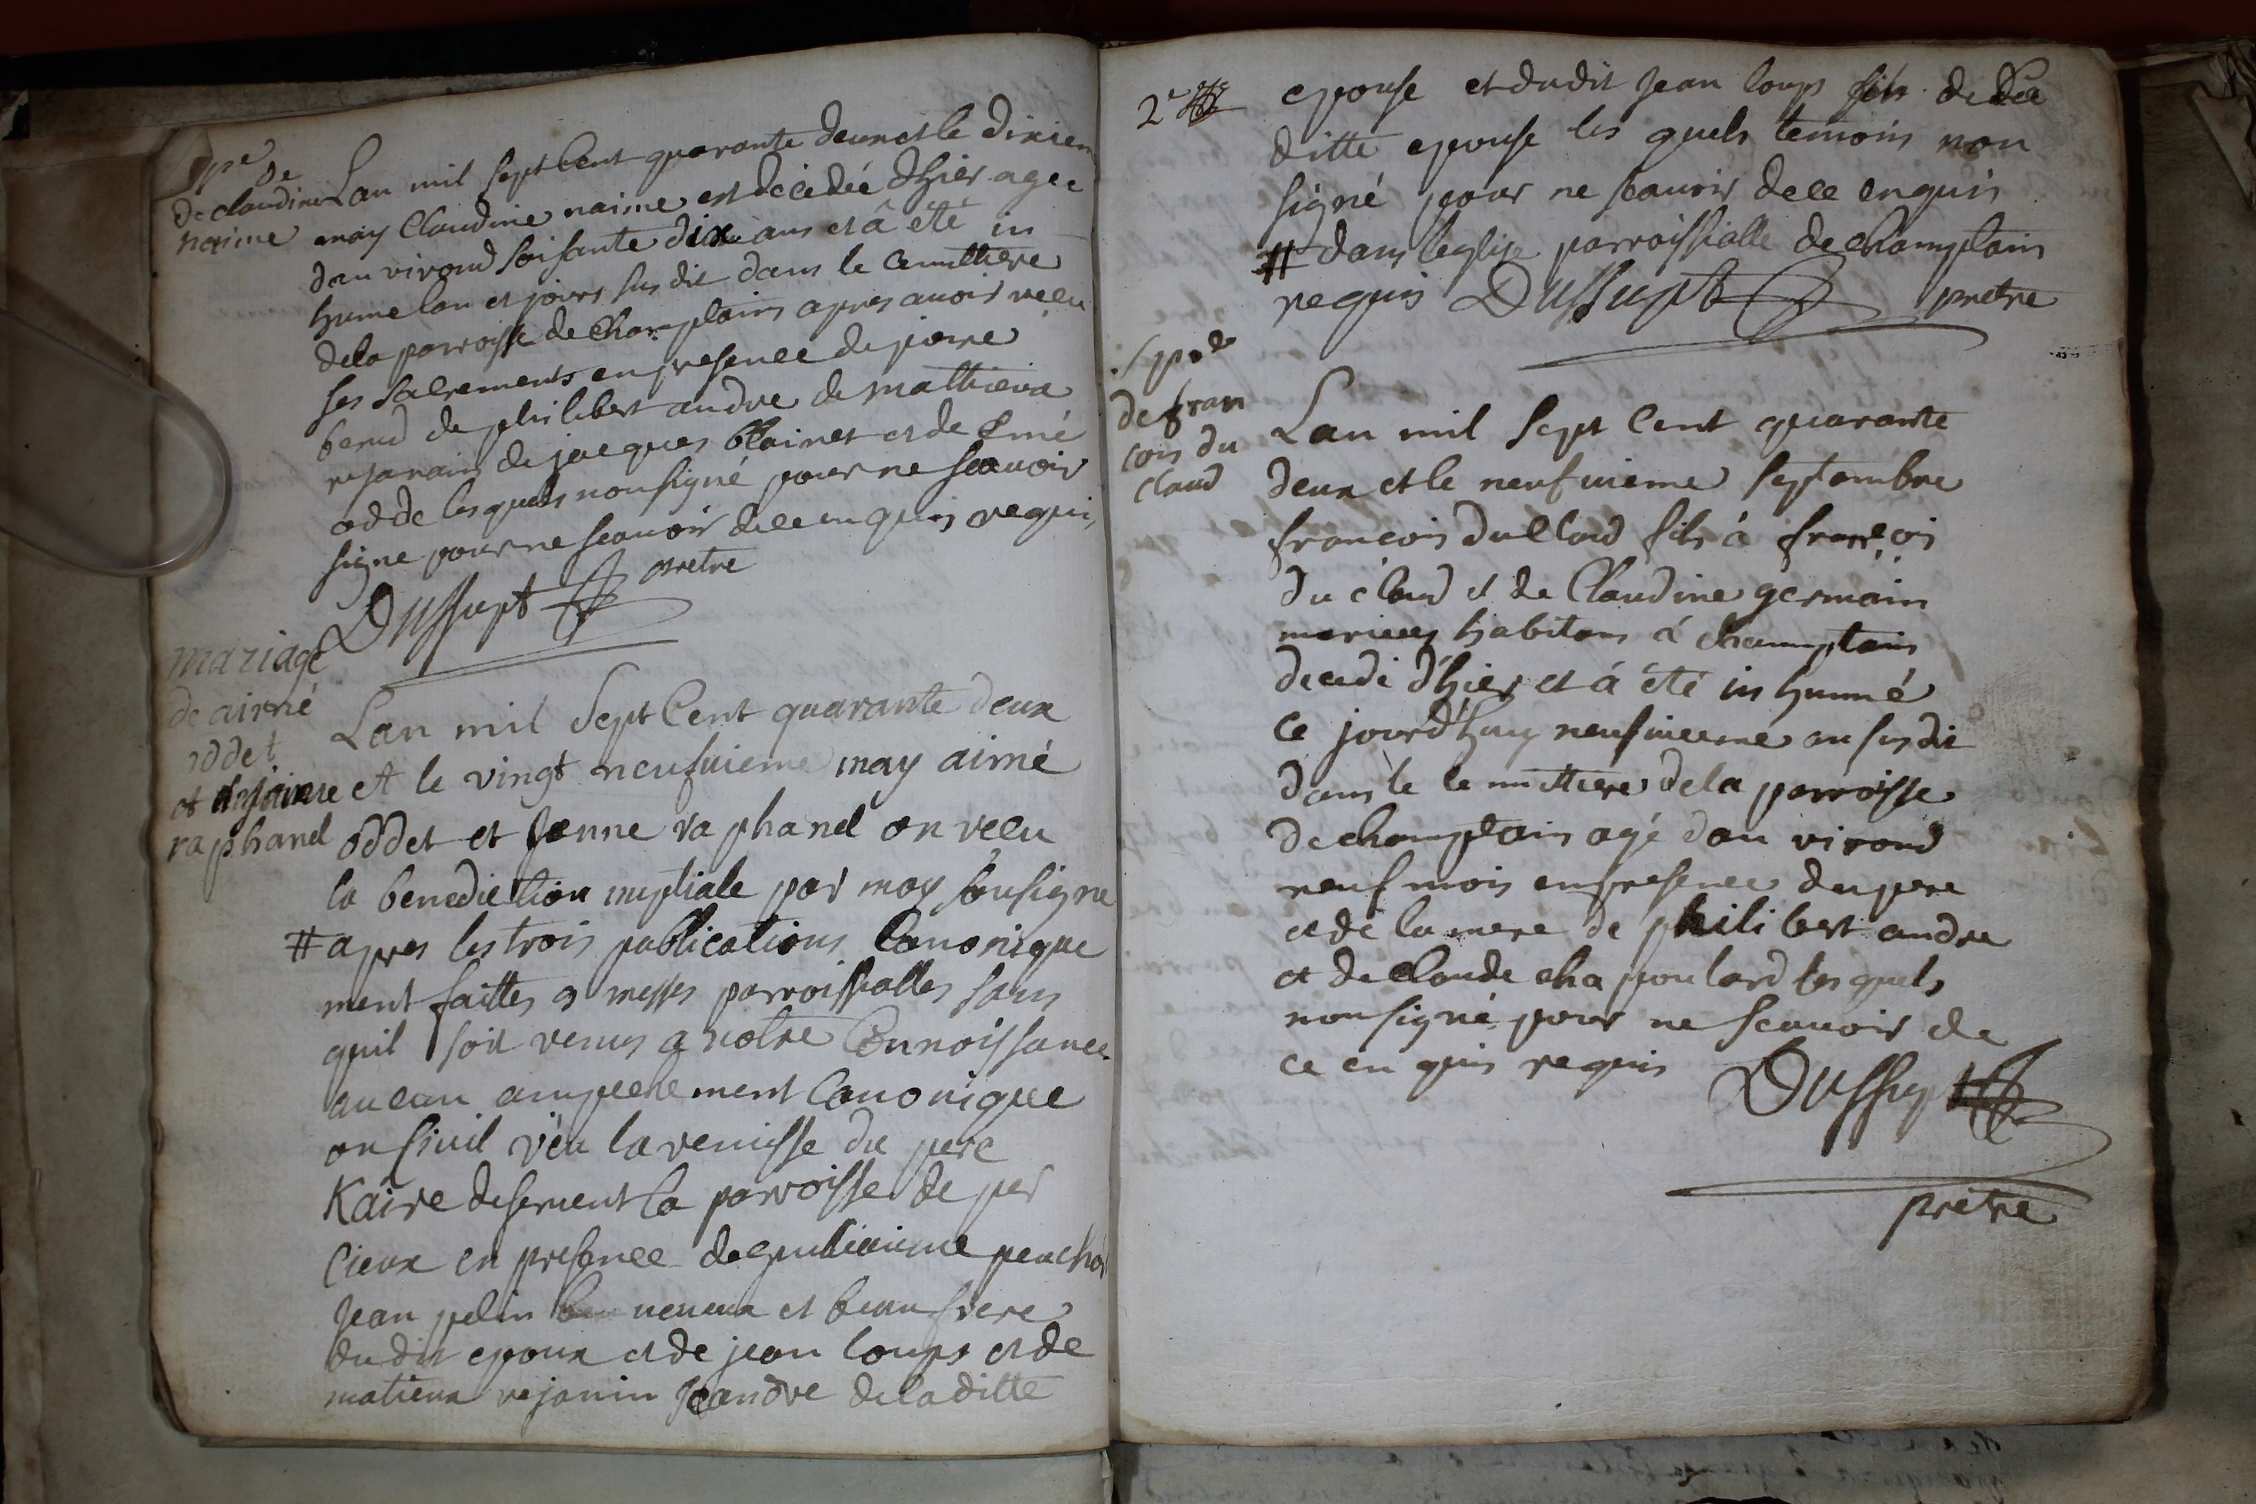 Spre de
de claudine
naime
Lan mil sept Cent quarante deux et le dixiem
may Claudine naime est decedée d'hier agee
dan virond soisante dix ans et â été in
hume lan et jours sus dit dans le cemittiere
de la parroisse de Champlain apres avoir recu
ses sacrements en presence de pierre
beraud de philibert andre de mathieux
rejanain de jacques blainet et de Emé
odde lesquels non signé pour ne scavoir
signe pour ne scavoir de ce enquis requis
Dussupt pretre
mariage
de aimé
oddet
et
raphanel
Lan mil Sept Cent quarante deux
et le vingt neufvieme may aimé
oddet et Jenne raphanel on recu
la benediction nuptiale par moy sousigne
# apres les trois publications Canonique
ment faittes a messes parroissialles sans
quil soit venus a notre Connoissance
aucun ampechement Canonique
ou sivil véu la remisse du pere
Kaire deservent la parroisse de per
cieux en presence de guiliaume peuchot
Jean pelin neveux et beau frere
du dit epoux et de jean loups et de
matieux rejanin Jeandre de la ditte
2e
epouse et du dit Jean loups fils de
ditte epouse les quels temoins non
signé pour ne scavoir de ce enquis
# dans leglise parroissialle de champlain
requis Dussupt pretre
Spre de
de fran
cois du
claud
Lan mil Sept Cent quarante
deux et le neufvieme Septembre
francois du Claud fils á francois
du claud et de Claudine germain
mariees habitans á champlain
decedé d'hier et á été in humé
ce jourd'huy neufvieme an susdit
dans le cemittiere de la parroisse
de champlain agé dan virond
neuf mois en presence du pere
et de la mere de philibert andre
et de Claude chapoulard les quels
non signé pour ne scavoir de
ce en quis requis
Dussupt
pretre